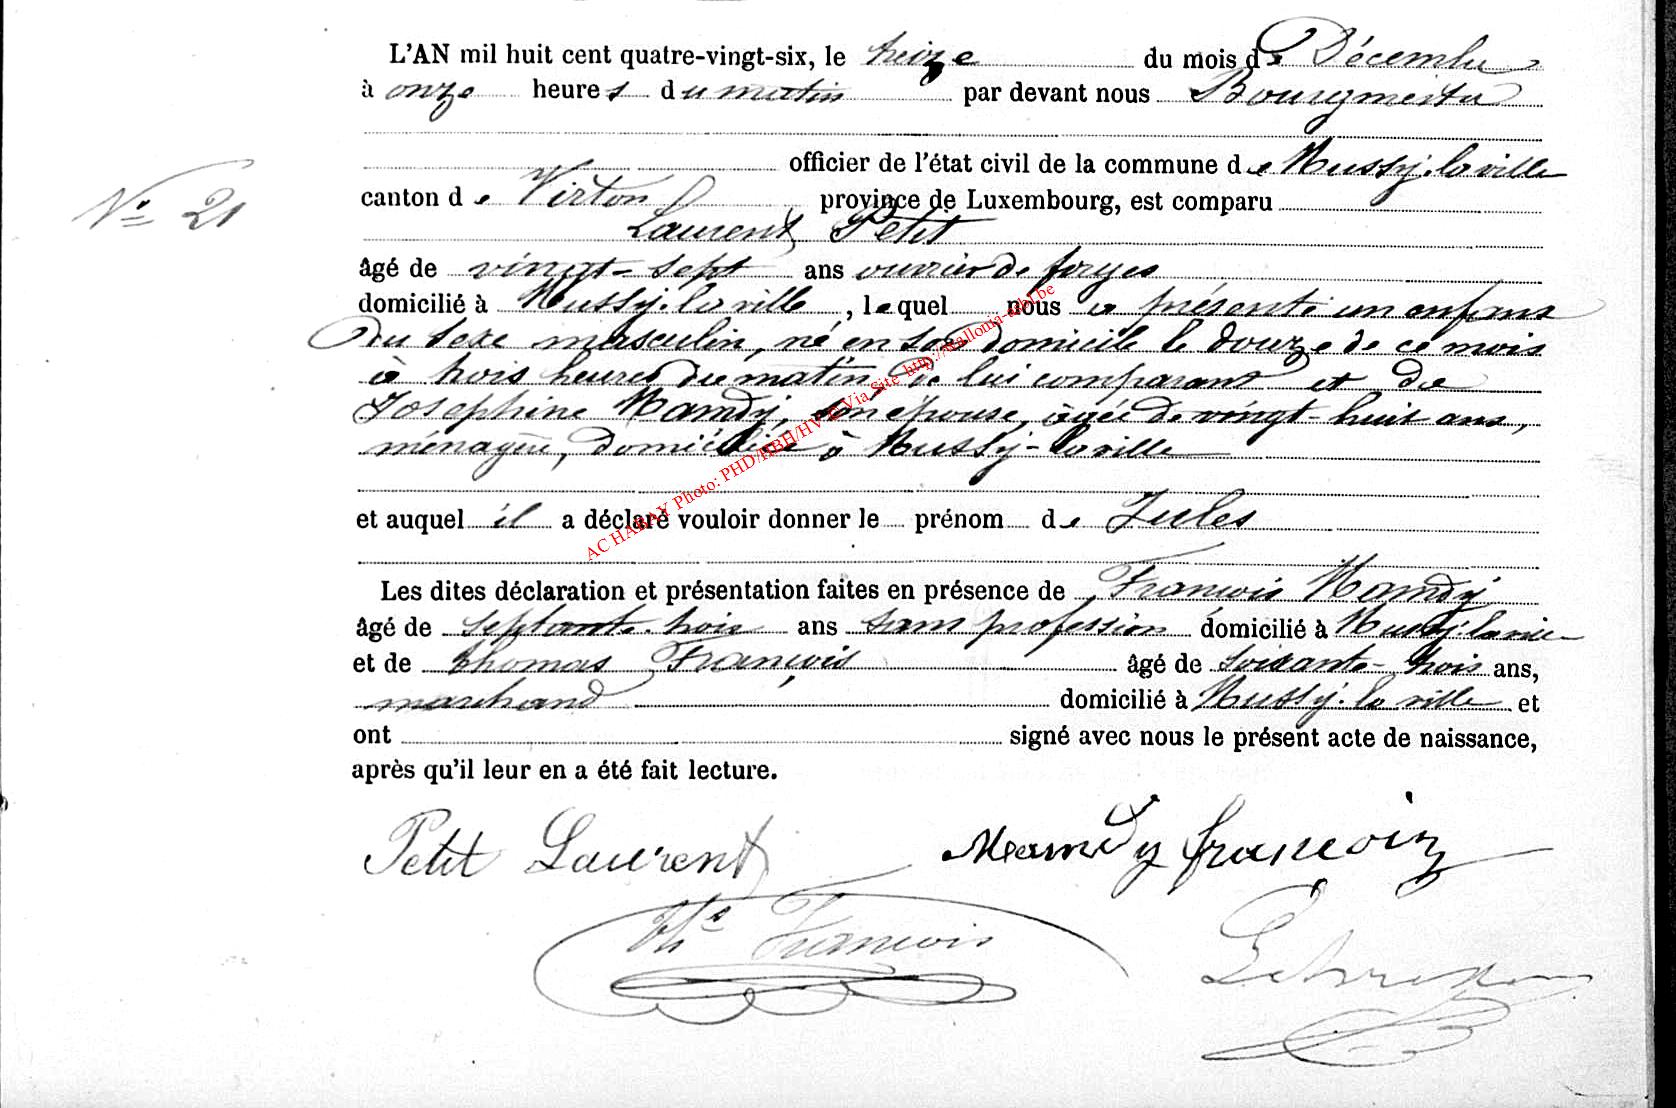 L'AN mil huit cent quatre-vingt-six, le treize du mois de Décembre
à onze heures du matin par devant nous Bourgmestre
officier de l'état civil de la commune de Mussy-la ville
N° 21
canton de Virton province de Luxembourg, est comparu
Laurent Petit
âgé de vingt-sept ans ouvrier de forges
domicilié à Mussy-la ville, lequel nous a présenté un enfant
du sexe masculin, né en son domicile le douze de ce mois
à trois heures du matin, de lui comparant et de
Joséphine Mandy, son épouse, âgée de vingt-huit ans,
ménagère, domiciliée à Mussy-la ville
et auquel il a déclaré vouloir donner le prénom de Jules
Les dites déclaration et présentation faites en présence de François Mandy
âgé de septante-trois ans sans profession domicilié à Mussy-la ville
et de Thomas François âgé de soixante-trois ans,
marchand domicilié à Mussy-la ville et
ont signé avec nous le présent acte de naissance,
après qu'il leur en a été fait lecture.
Petit Laurent Mandy françois
Ths François
AC HABAY Photo: PHD/HBH/HV © Via Site http://wallonia-asbl.be